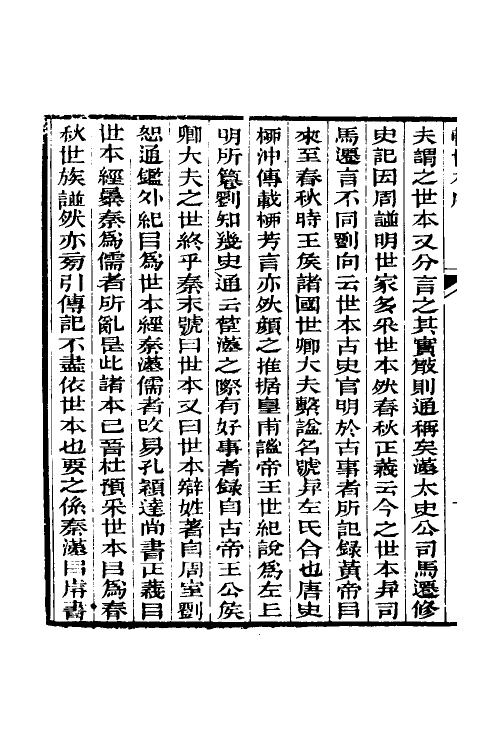 夫謂之世本又分言之其實散則通稱矣漢太史公司馬遷修
史記因周譜明世家多采世本然春秋正義云今之世本與司
馬遷言不同劉向云世本古史官明於古事者所記錄黃帝㠯
來至春秋時王矦諸國世卿大夫繫謚名號與左氏合也唐史
栁沖傳載栁芳言亦然顏之推据皇甫謐帝王世紀說為左丘
明所篹劉知幾史通云楚漢之際有好事者錄自古帝王公矦
卿大夫之世終乎秦末號曰世本又曰世本辯姓著自周室劉
恕通鑑外紀㠯為世本經秦漢儒者改易孔穎達尚書正義㠯
世本經㬥秦為儒者所亂是此諸本已晉杜預采世本㠯為春
秋世族譜然亦㫄引傳記不盡依世本也要之係秦漢㠯歬書